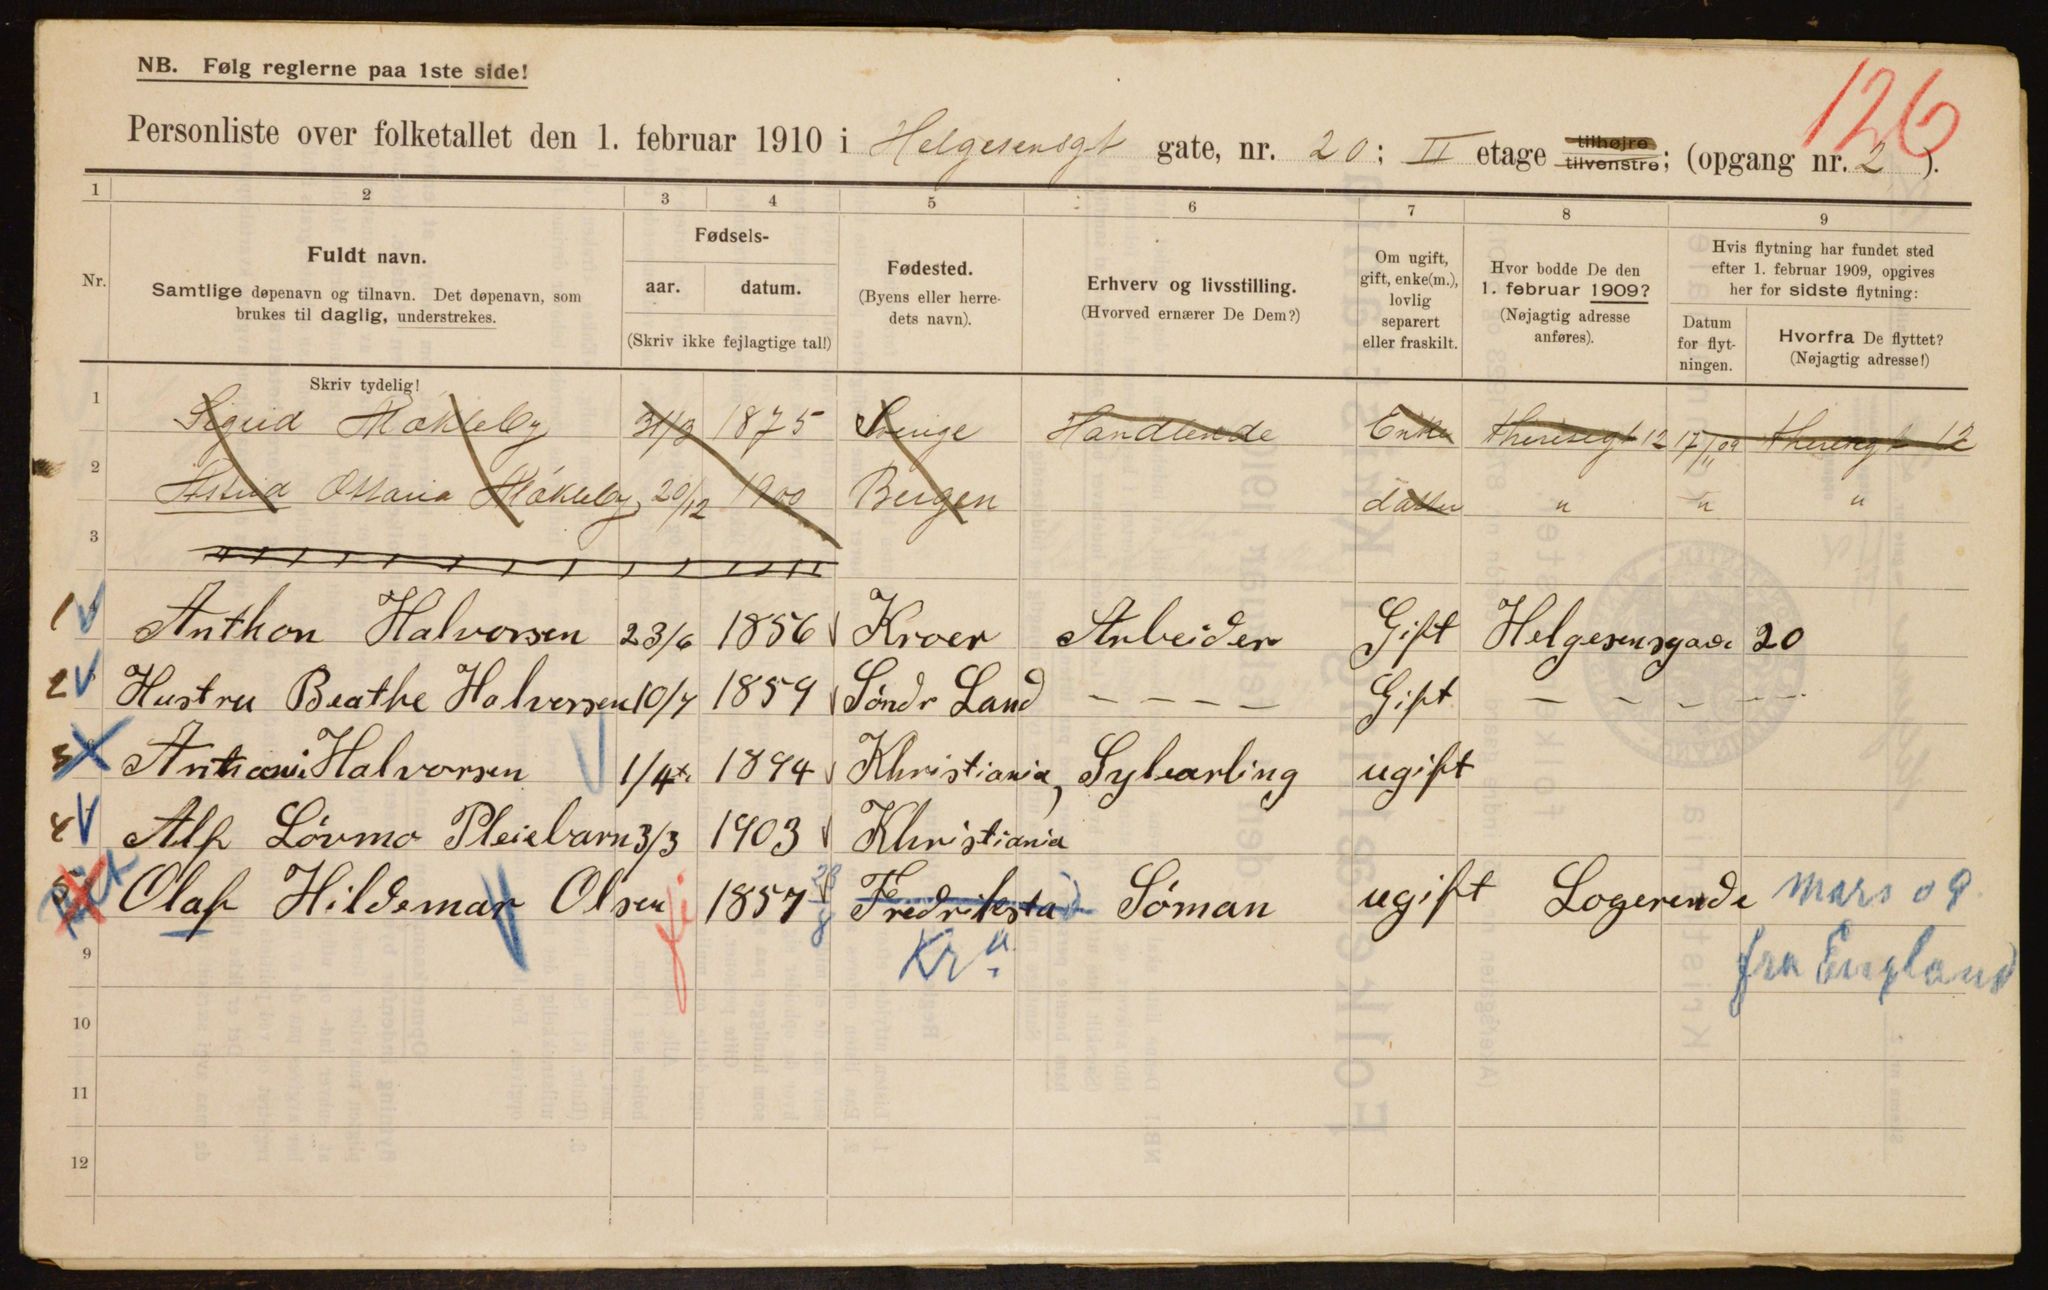 NB. Følg reglerne paa 1ste side!
126
Personliste over folketallet den 1. februar 1910 i Helgesensgt gate, nr. 20; II etage tilhøjre tilvenstre; (opgang nr. 2 ).
1 2 3 4 5 6 7 8 9
Nr.
Fuldt navn.
Samtlige døpenavn og tilnavn. Det døpenavn, som
brukes til daglig, understrekes.
Fødsels-
aar. datum.
(Skriv ikke fejlagtige tal!)
Fødested.
(Byens eller herre-
dets navn).
Erhverv og livsstilling.
(Hvorved ernærer De Dem?)
Om ugift,
gift, enke(m.),
lovlig
separert
eller fraskilt.
Hvor bodde De den
1. februar 1909?
(Nøjagtig adresse
anføres).
Hvis flytning har fundet sted
efter 1. februar 1909, opgives
her for sidste flytning:
Datum
for flyt-
ningen.
Hvorfra De flyttet?
(Nøjagtig adresse!)
Skriv tydelig!
1 Sigrid Mökleby 31/3 1875 Sverige Handlende Enke theresegt 12 17/11 09 theresegt 12
2 Astrid Ottaria Mökleby 20/12 1900 Bergen datter " " "
3
1 Anthon Halvorsen 23/6 1856 Kroer Arbeider Gift Helgesensgade 20
2 Hustru Beathe Halvorsen 10/7 1859 Søndr Land – – – – Gift – – – –
3 Halvorsen 1/4 1894 Khristiania, Sylærling ugift
4 Alf Lövmo Pleiebarn 3/3 1903 Khristiania
5 Olaf Hildemar Olsen 1857 28/8 Fredrikstad Sóman ugift Logerende mars 09
9 Kra. fra England
10
11
12